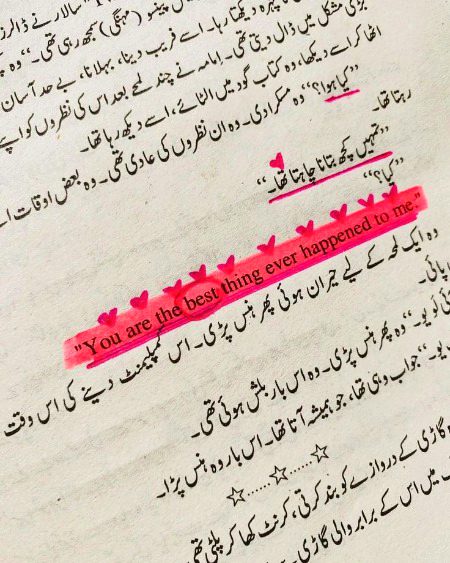 چہرہ دیکھتا رہا۔ اسے فریب دینا، بہلانا، بے حد آسان
بڑی مشکل میں ڈال دیتی تھی۔ امامہ نے چند لمحے بعد اس کی نظروں کو اپنے
اٹھا کر اسے دیکھا، وہ کتاب گود میں الٹائے، اسے دیکھ رہا تھا۔
”کیا ہوا؟“ وہ مسکرا دی۔ وہ ان نظروں کی عادی تھی۔ وہ بعض اوقات اسے
رہتا تھا۔
”تمہیں کچھ بتانا چاہتا تھا۔“
”کیا؟“
"You are the best thing ever happened to me."
وہ ایک لمحہ کے لیے حیران ہوئی پھر ہنس پڑی۔ اس کمپلیمنٹ دینے کی اس وقت
پائی۔
لو یو۔“ وہ پھر ہنس پڑی۔ وہ اس بار بلش ہوئی تھی۔
یو۔“ جواب وہی تھا، جو ہمیشہ آتا تھا۔ اس بار وہ ہنس پڑا۔
☆......☆......☆
گاڑی کے دروازے کو بند کرتی، کرنٹ کھا کر پلٹی تھی
میں اس کے برابر والی گاڑی۔